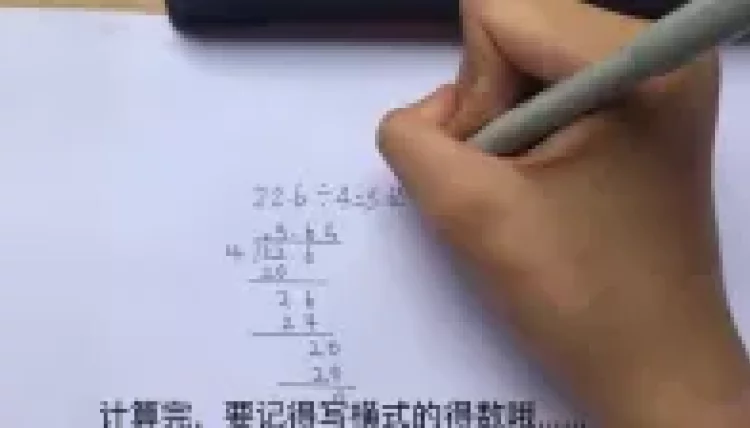 22.6÷4=5.6
5.65
4 22.6
20
26
24
20
20
0
计算完，要记得写横式的得数哦……